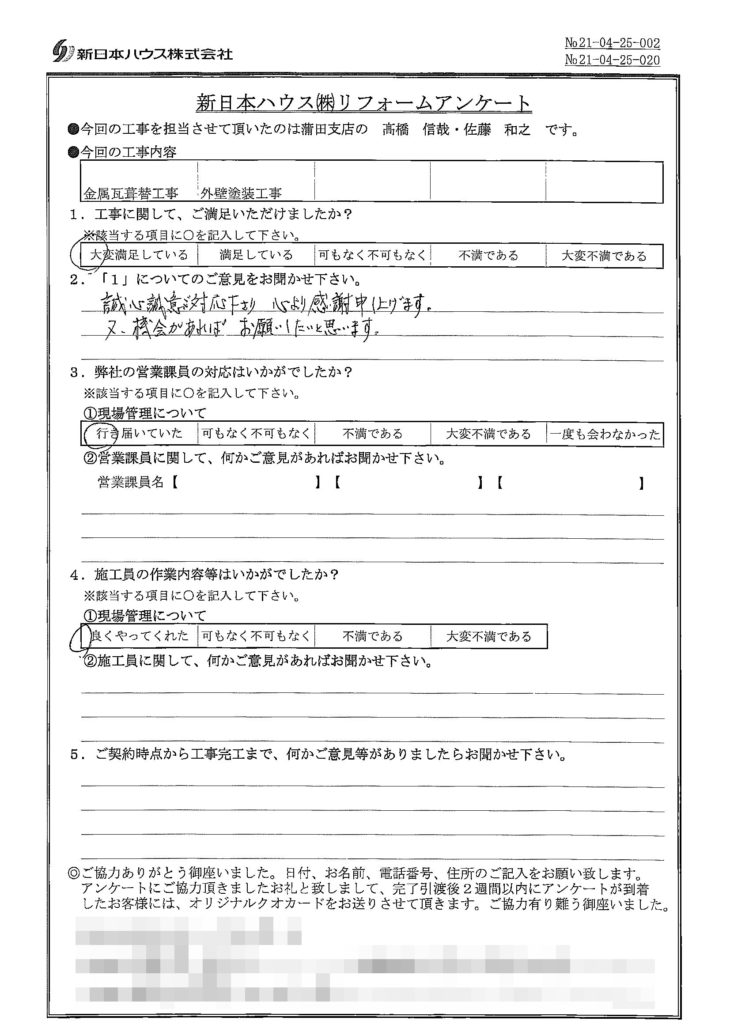 新日本ハウス株式会社
№21-04-25-002
№21-04-25-020
新日本ハウス㈱リフォームアンケート
●今回の工事を担当させて頂いたのは蒲田支店の 高橋 信哉・佐藤 和之 です。
●今回の工事内容
金属瓦葺替工事 外壁塗装工事
1．工事に関して、ご満足いただけましたか？
※該当する項目に○を記入して下さい。
大変満足している 満足している 可もなく不可もなく 不満である 大変不満である
2．「1」についてのご意見をお聞かせ下さい。
誠心誠意が対応下さり 心より感謝申し上げます。
又、機会があれば お願いしたいと思います。
3．弊社の営業課員の対応はいかがでしたか？
※該当する項目に○を記入して下さい。
①現場管理について
行き届いていた 可もなく不可もなく 不満である 大変不満である 一度も会わなかった
②営業課員に関して、何かご意見があればお聞かせ下さい。
営業課員名【 】【 】【 】
4．施工員の作業内容等はいかがでしたか？
※該当する項目に○を記入して下さい。
①現場管理について
良くやってくれた 可もなく不可もなく 不満である 大変不満である
②施工員に関して、何かご意見があればお聞かせ下さい。
5．ご契約時点から工事完工まで、何かご意見等がありましたらお聞かせ下さい。
◎ご協力ありがとう御座いました。日付、お名前、電話番号、住所のご記入をお願い致します。
アンケートにご協力頂きましたお礼と致しまして、完了引渡後２週間以内にアンケートが到着
したお客様には、オリジナルクオカードをお送りさせて頂きます。ご協力有り難う御座いました。